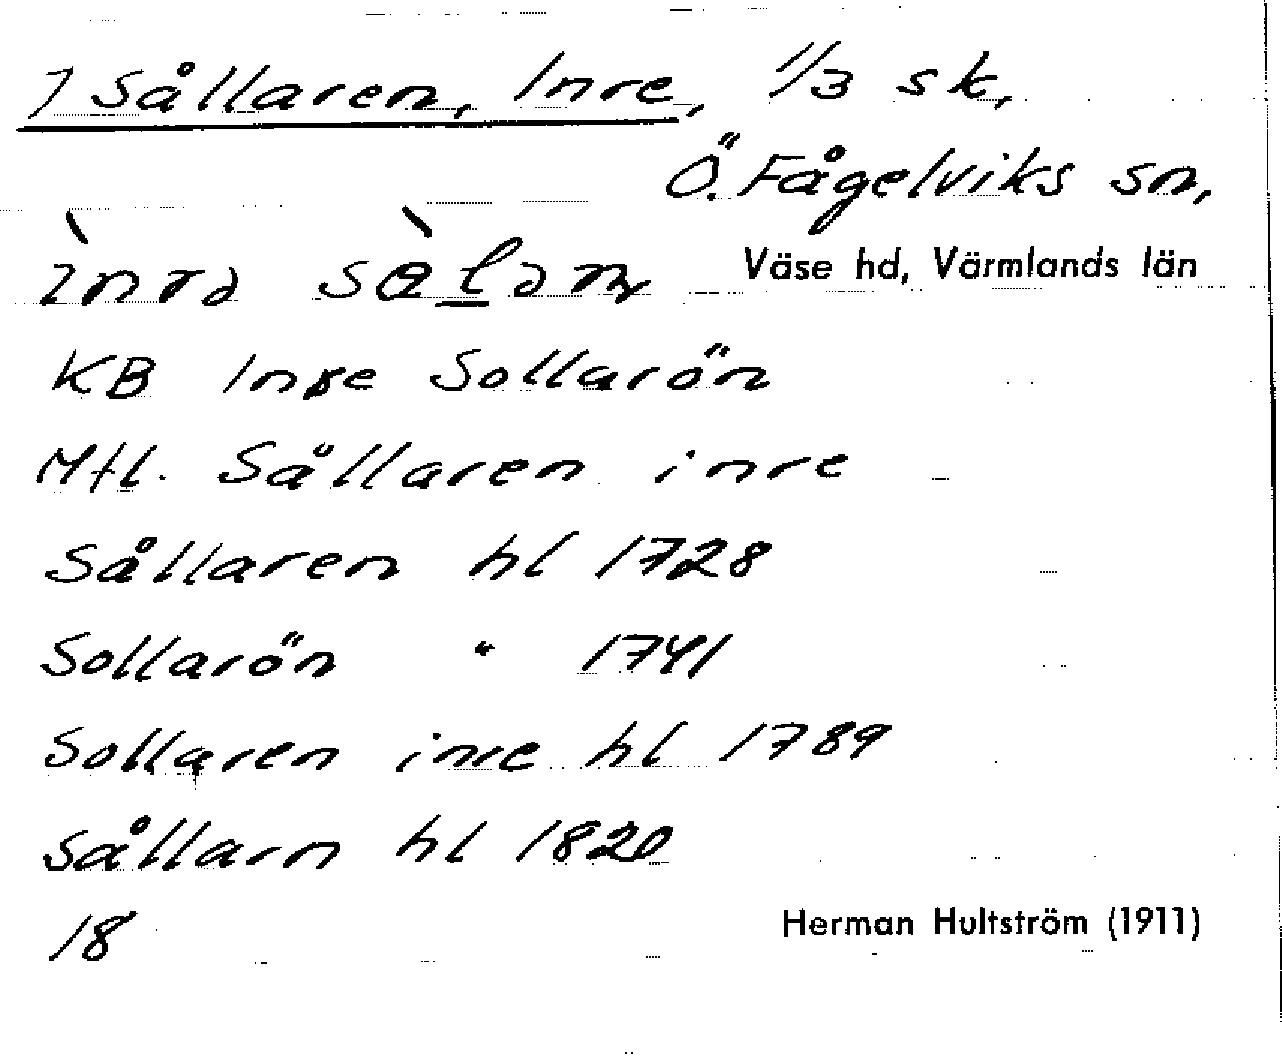 7 Sållaren, Inre, 1/3 sk,
Ö. Fågelviks sn,
Väse hd, Värmlands län
KB Inre Sollarön
Mtl. Sållaren inre
Sållaren hl 1728
Sollarön " 1741
Sollaren inre hl 1789
Sållarn hl 1820
18
Herman Hultström (1911)